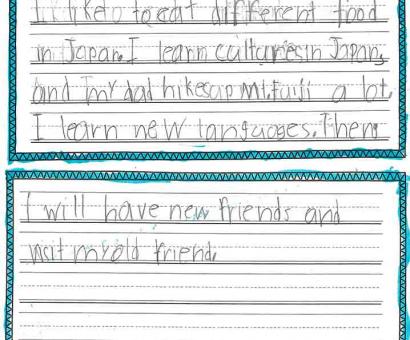 I like to eat different food
in Japan. I learn cultures in Japan,
and my dad hikes up Mt. Fuiji a lot.
I learn new languages. Then
I will have new friends and
visit my old friend.